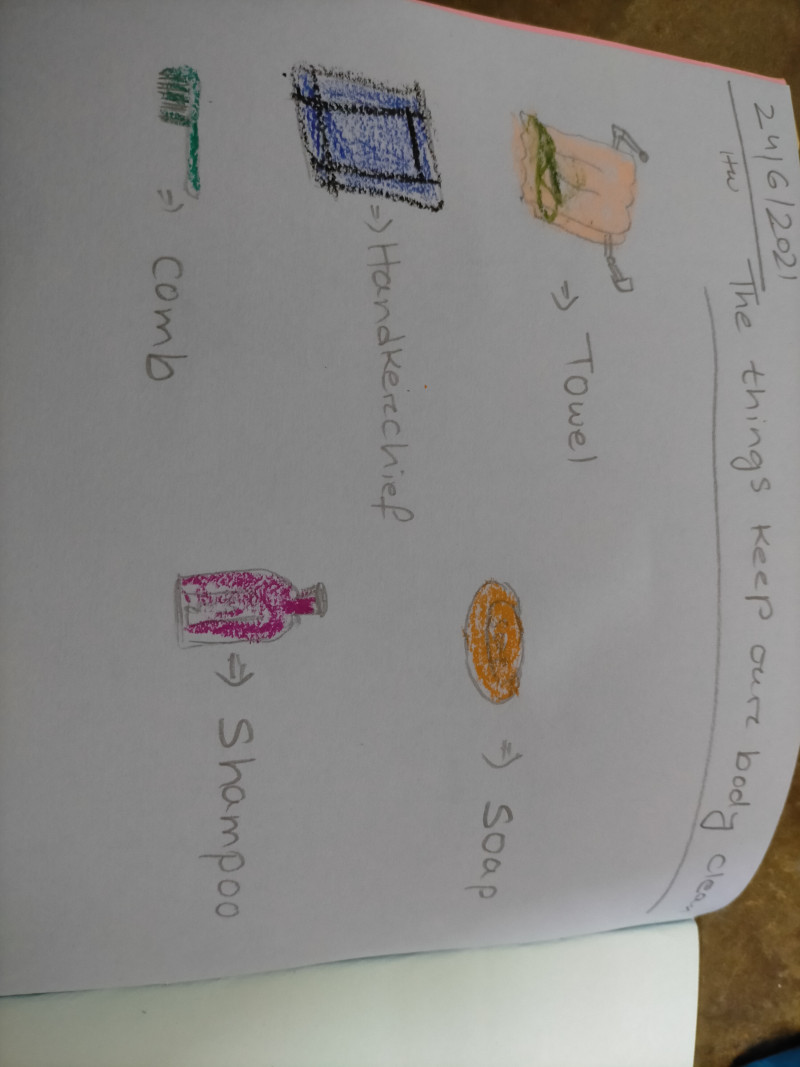 24/6/2021
HW
The things keep our body clea
⇒ Towel
⇒ Soap
⇒ Handkerchief
⇒ Shampoo
⇒ Comb